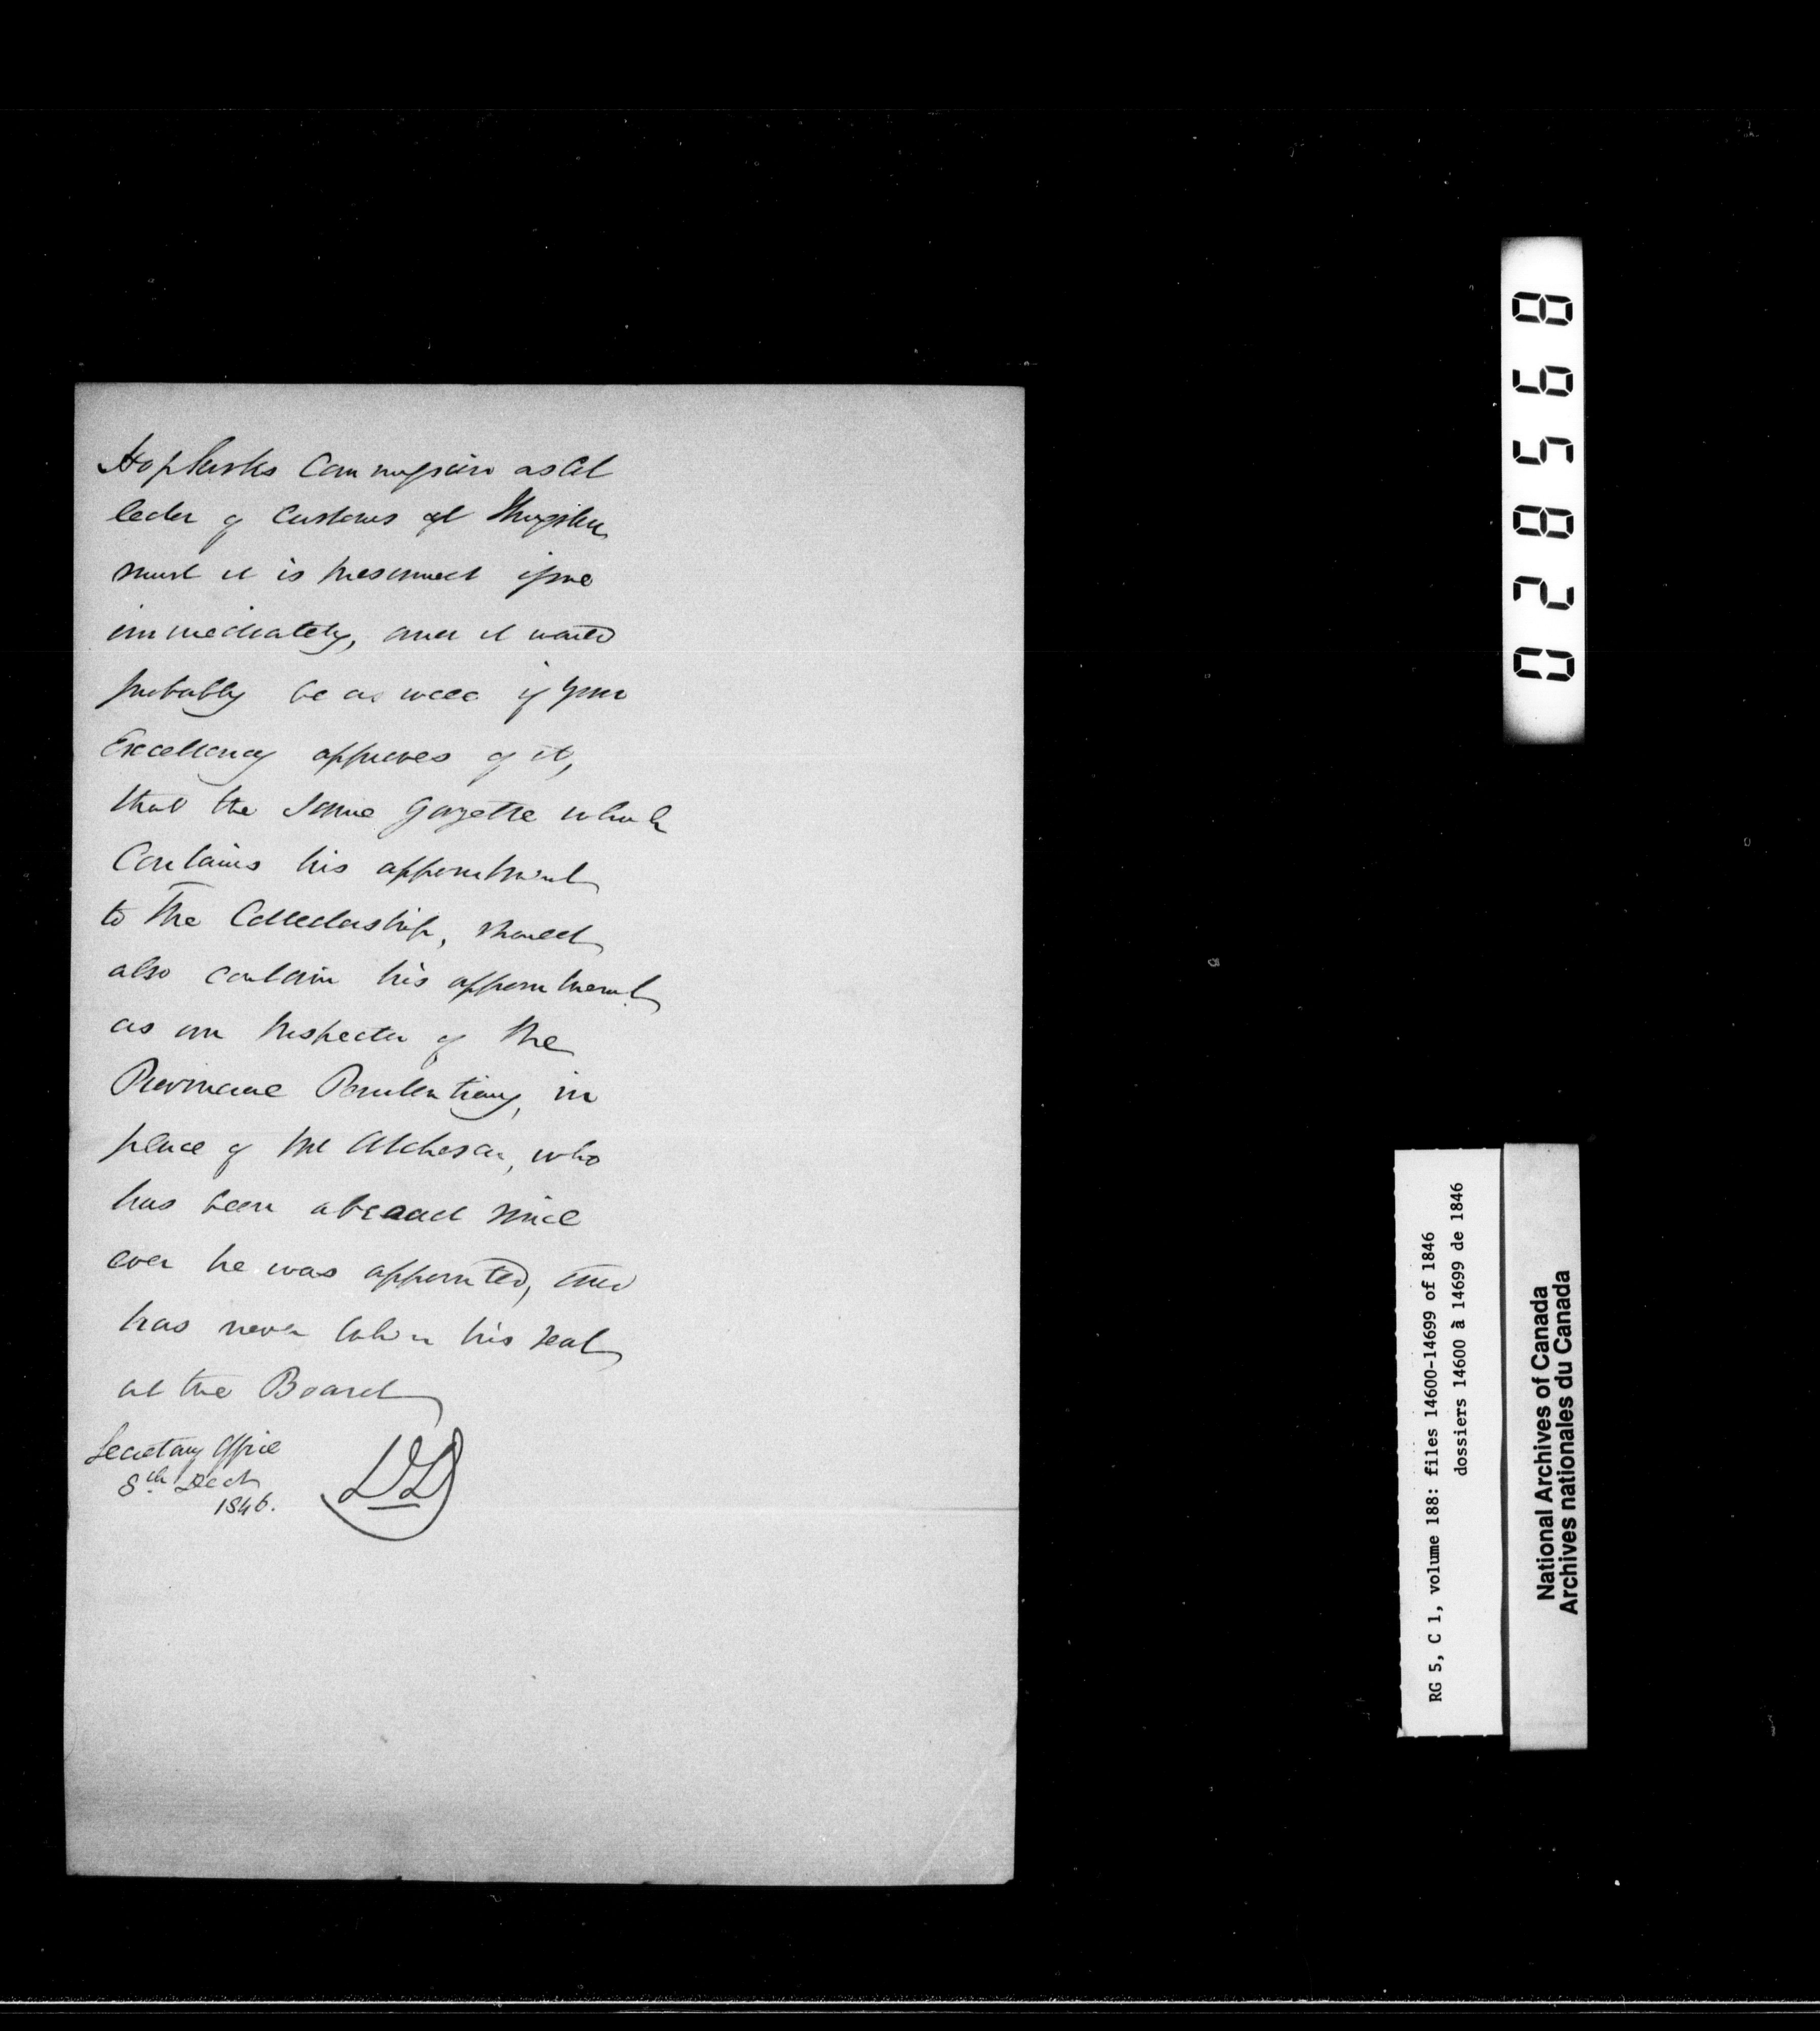 Hopkirks Commission as Col
lector of Customs at Kingston
must it is presumed issue
immediately, and it would
probably be as well if your
Excellency approves of it,
that the same Gazette which
Contains his appointment
to the Collectorship, should
also contain his appointment
as an Inspector of the
Provincial Penitentiary, in
place of Mr Atcheson, who
has been abroad since
ever he was appointed, and
has never taken his seat
at the Board
Secretary Office
8th Dect
1846.
DD
028568
RG 5, C 1, volume 188: files 14600-14699 of 1846
dossiers 14600 à 14699 de 1846
National Archives of Canada
Archives nationales du Canada